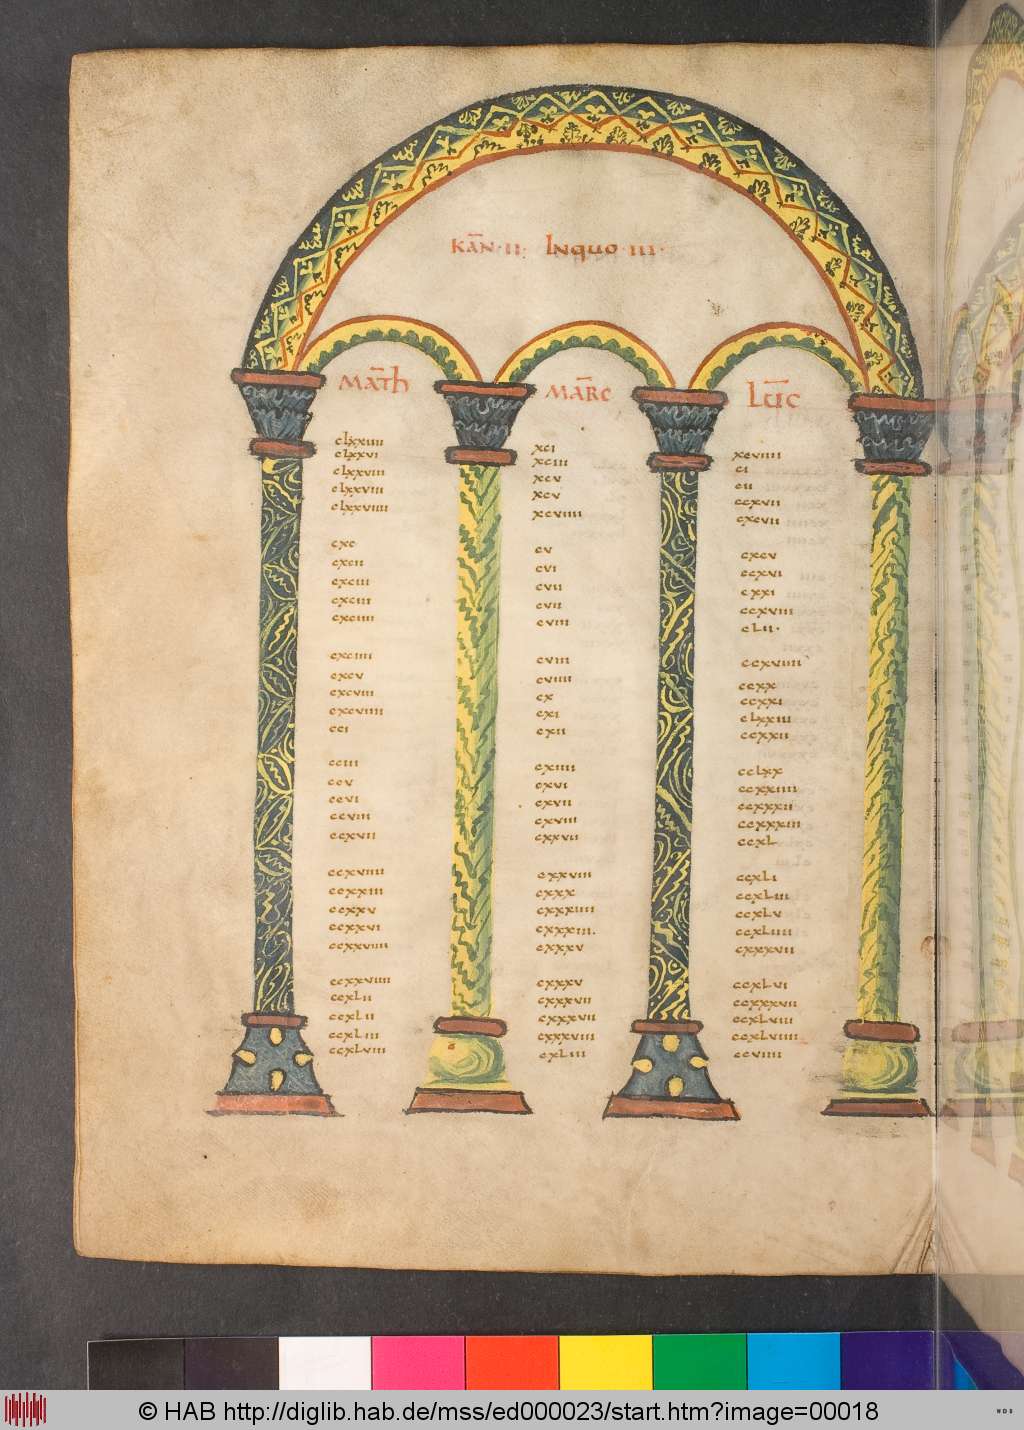 KAN · II · Inquo · III ·
MATH MARC LUC
clxxiiii xci xcviiii
clxxvi xciii ci
clxxviii xcv cii
clxxviii xcv ccxvii
clxxviiii xcviiii cxcvii
cxc cv cxcv
cxcii cvi ccxvi
cxciii cvii cxxi
cxciii cvii ccxviii
cxciiii cviii clii ·
cxciiii cviii ccxviiii
cxcv cviiii ccxx
cxcviii cx ccxxi
cxcviiii cxi clxxiii
cci cxii ccxxii
cciii cxiiii cclxx
ccv cxvi ccxxiiii
ccvi cxvii ccxxxii
ccviii cxviii ccxxxiii
ccxvii cxxvii ccxl
ccxviiii cxxviii ccxli
ccxxiii cxxx ccxliii
ccxxv cxxxiiii ccxlv
ccxxvi cxxxiii. ccxliiii
ccxxviiii cxxxv cxxxvii
ccxxviiii cxxxv ccxlvi
ccxlii cxxxvii ccxxxvii
ccxlii cxxxvii ccxlviii
ccxliii cxxxviii ccxlviiii
ccxlviii cxliii ccviiii
© HAB http://diglib.hab.de/mss/ed000023/start.htm?image=00018
WDB